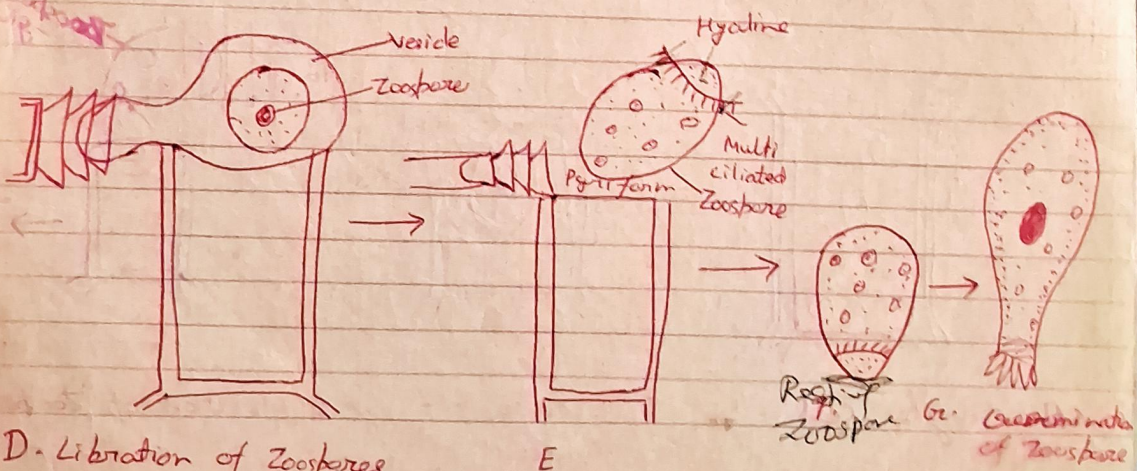 Vesicle
Zoospore
Hyaline
Multi
ciliated
Zoospore
Pyriform
Resting
Zoospore
D. Libration of Zoospores
E
G. Germination
of Zoospore